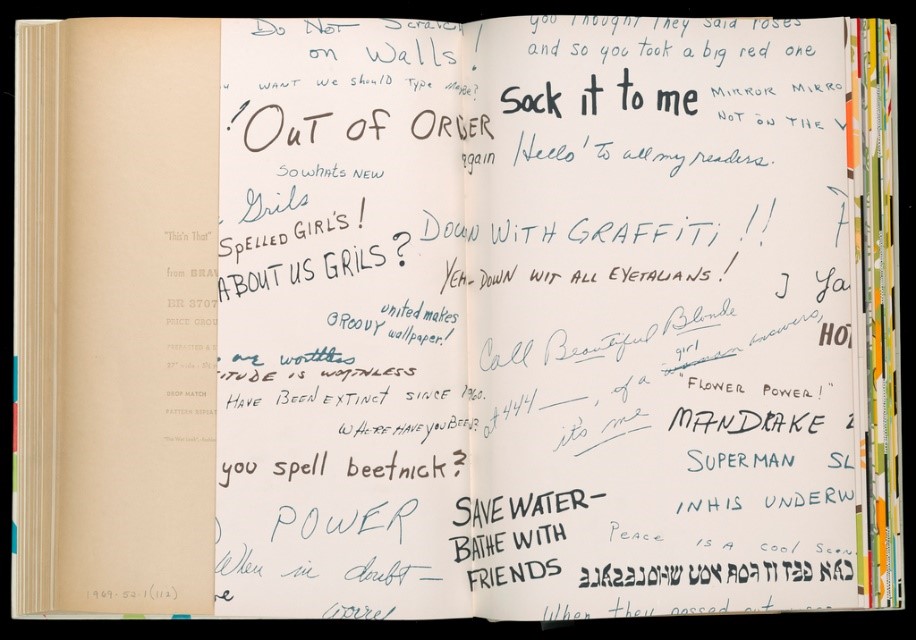 Do Not Scratch
on Walls!
WANT We should Type Maybe?
! OuT of ORDER
again
So whats NEW
Grils
SPELLED GIRL'S!
ABOUT US GRILS?
united makes
GROOVY wallpaper!
are worthless
ITUDE IS WORTHLESS
HAVE BEEN EXTINCT SINCE 1960.
WHERE HAVE YOU BEEN?
you spell beetnick?
POWER
When in doubt—
"This'n That"
from
BR 5707
1969-52-1(112)
you thought they said roses
and so you took a big red one
Sock it to me
MIRROR MIRRO
NOT ON THE
Hello' To all my readers.
DOWN WITH GRAFFITI!!
YEH-DOWN WIT ALL EYETALIANS!
Ya
HO
Call Beautiful Blonde
girl
at 444 —, if a woman answers,
it's me
"FLOWER POWER!"
MANDRAKE
SUPERMAN SL
IN HIS UNDERW
SAVE WATER—
BATHE WITH
FRIENDS
Peace IS A COOL
When they passed out